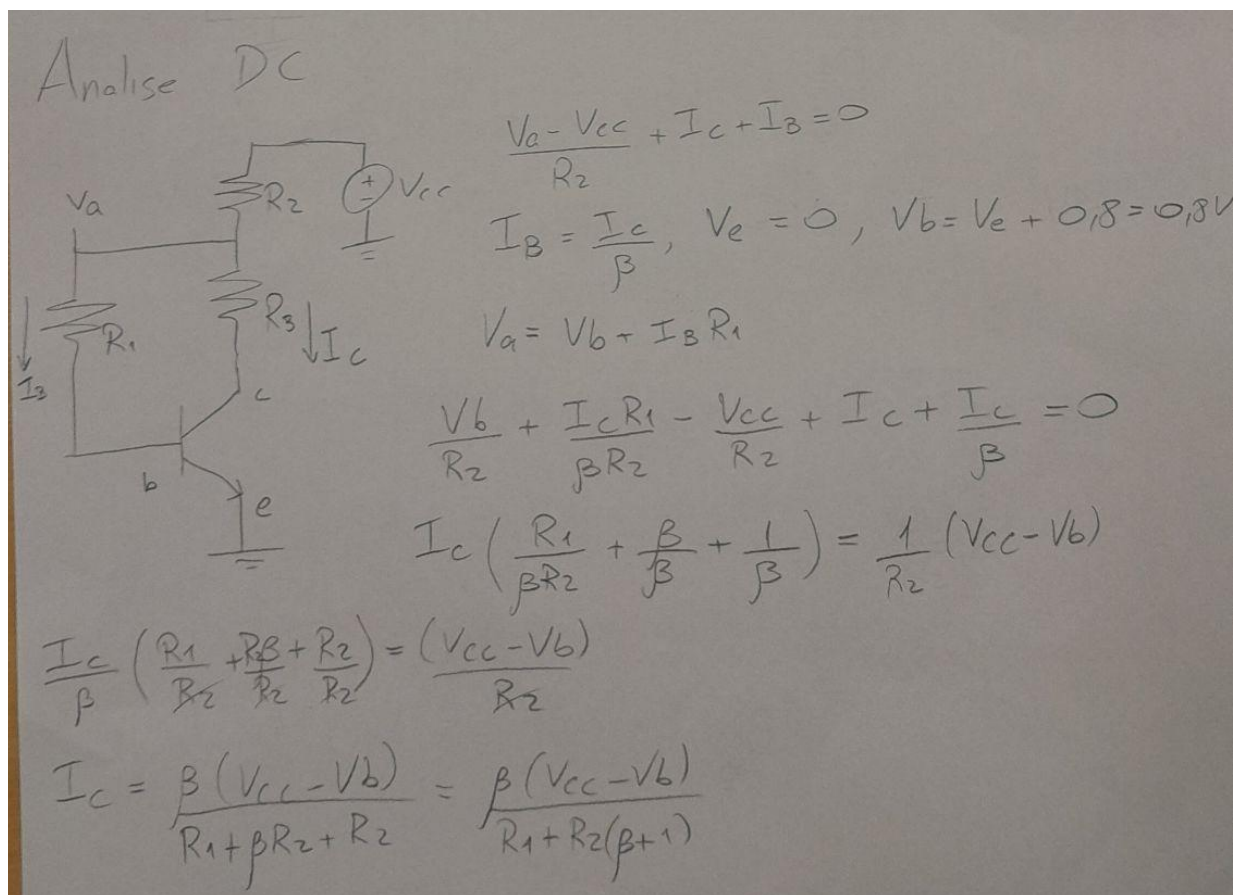 Analise DC
(Va - Vcc)/R2 + Ic + IB = 0
Va
R2
Vcc
IB = Ic/β, Ve = 0, Vb = Ve + 0,8 = 0,8V
R1
R3
Ic
IB
Va = Vb + IB R1
c
b
e
Vb/R2 + IcR1/βR2 - Vcc/R2 + Ic + Ic/β = 0
Ic (R1/βR2 + β/β + 1/β) = 1/R2 (Vcc - Vb)
Ic/β (R1/R2 + R2β/R2 + R2/R2) = (Vcc - Vb)/R2
Ic = β(Vcc - Vb)/(R1 + βR2 + R2) = β(Vcc - Vb)/(R1 + R2(β+1))